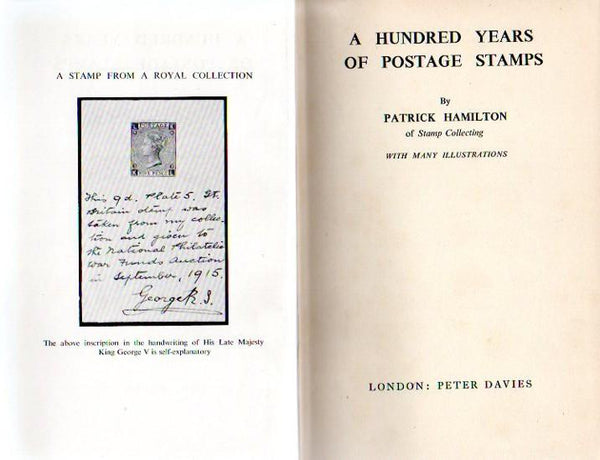 A STAMP FROM A ROYAL COLLECTION
POSTAGE
NINE PENCE
This 9d. Plate 5. Gt.
Britain stamp was
taken from my collec-
tion and given to
the National Philatelic
War Funds Auction
in September, 1915.
George R.I.
The above inscription in the handwriting of His Late Majesty
King George V is self-explanatory
A HUNDRED YEARS
OF POSTAGE STAMPS
By
PATRICK HAMILTON
of Stamp Collecting
WITH MANY ILLUSTRATIONS
LONDON: PETER DAVIES